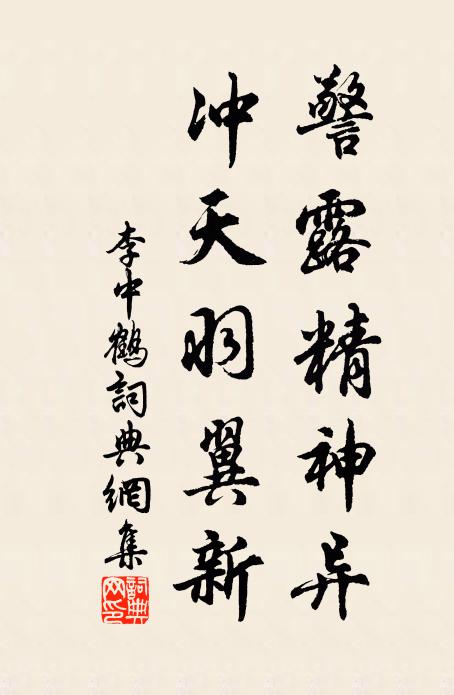 警露精神异
冲天羽翼新
李中鶴詞典網集
詞典
网印